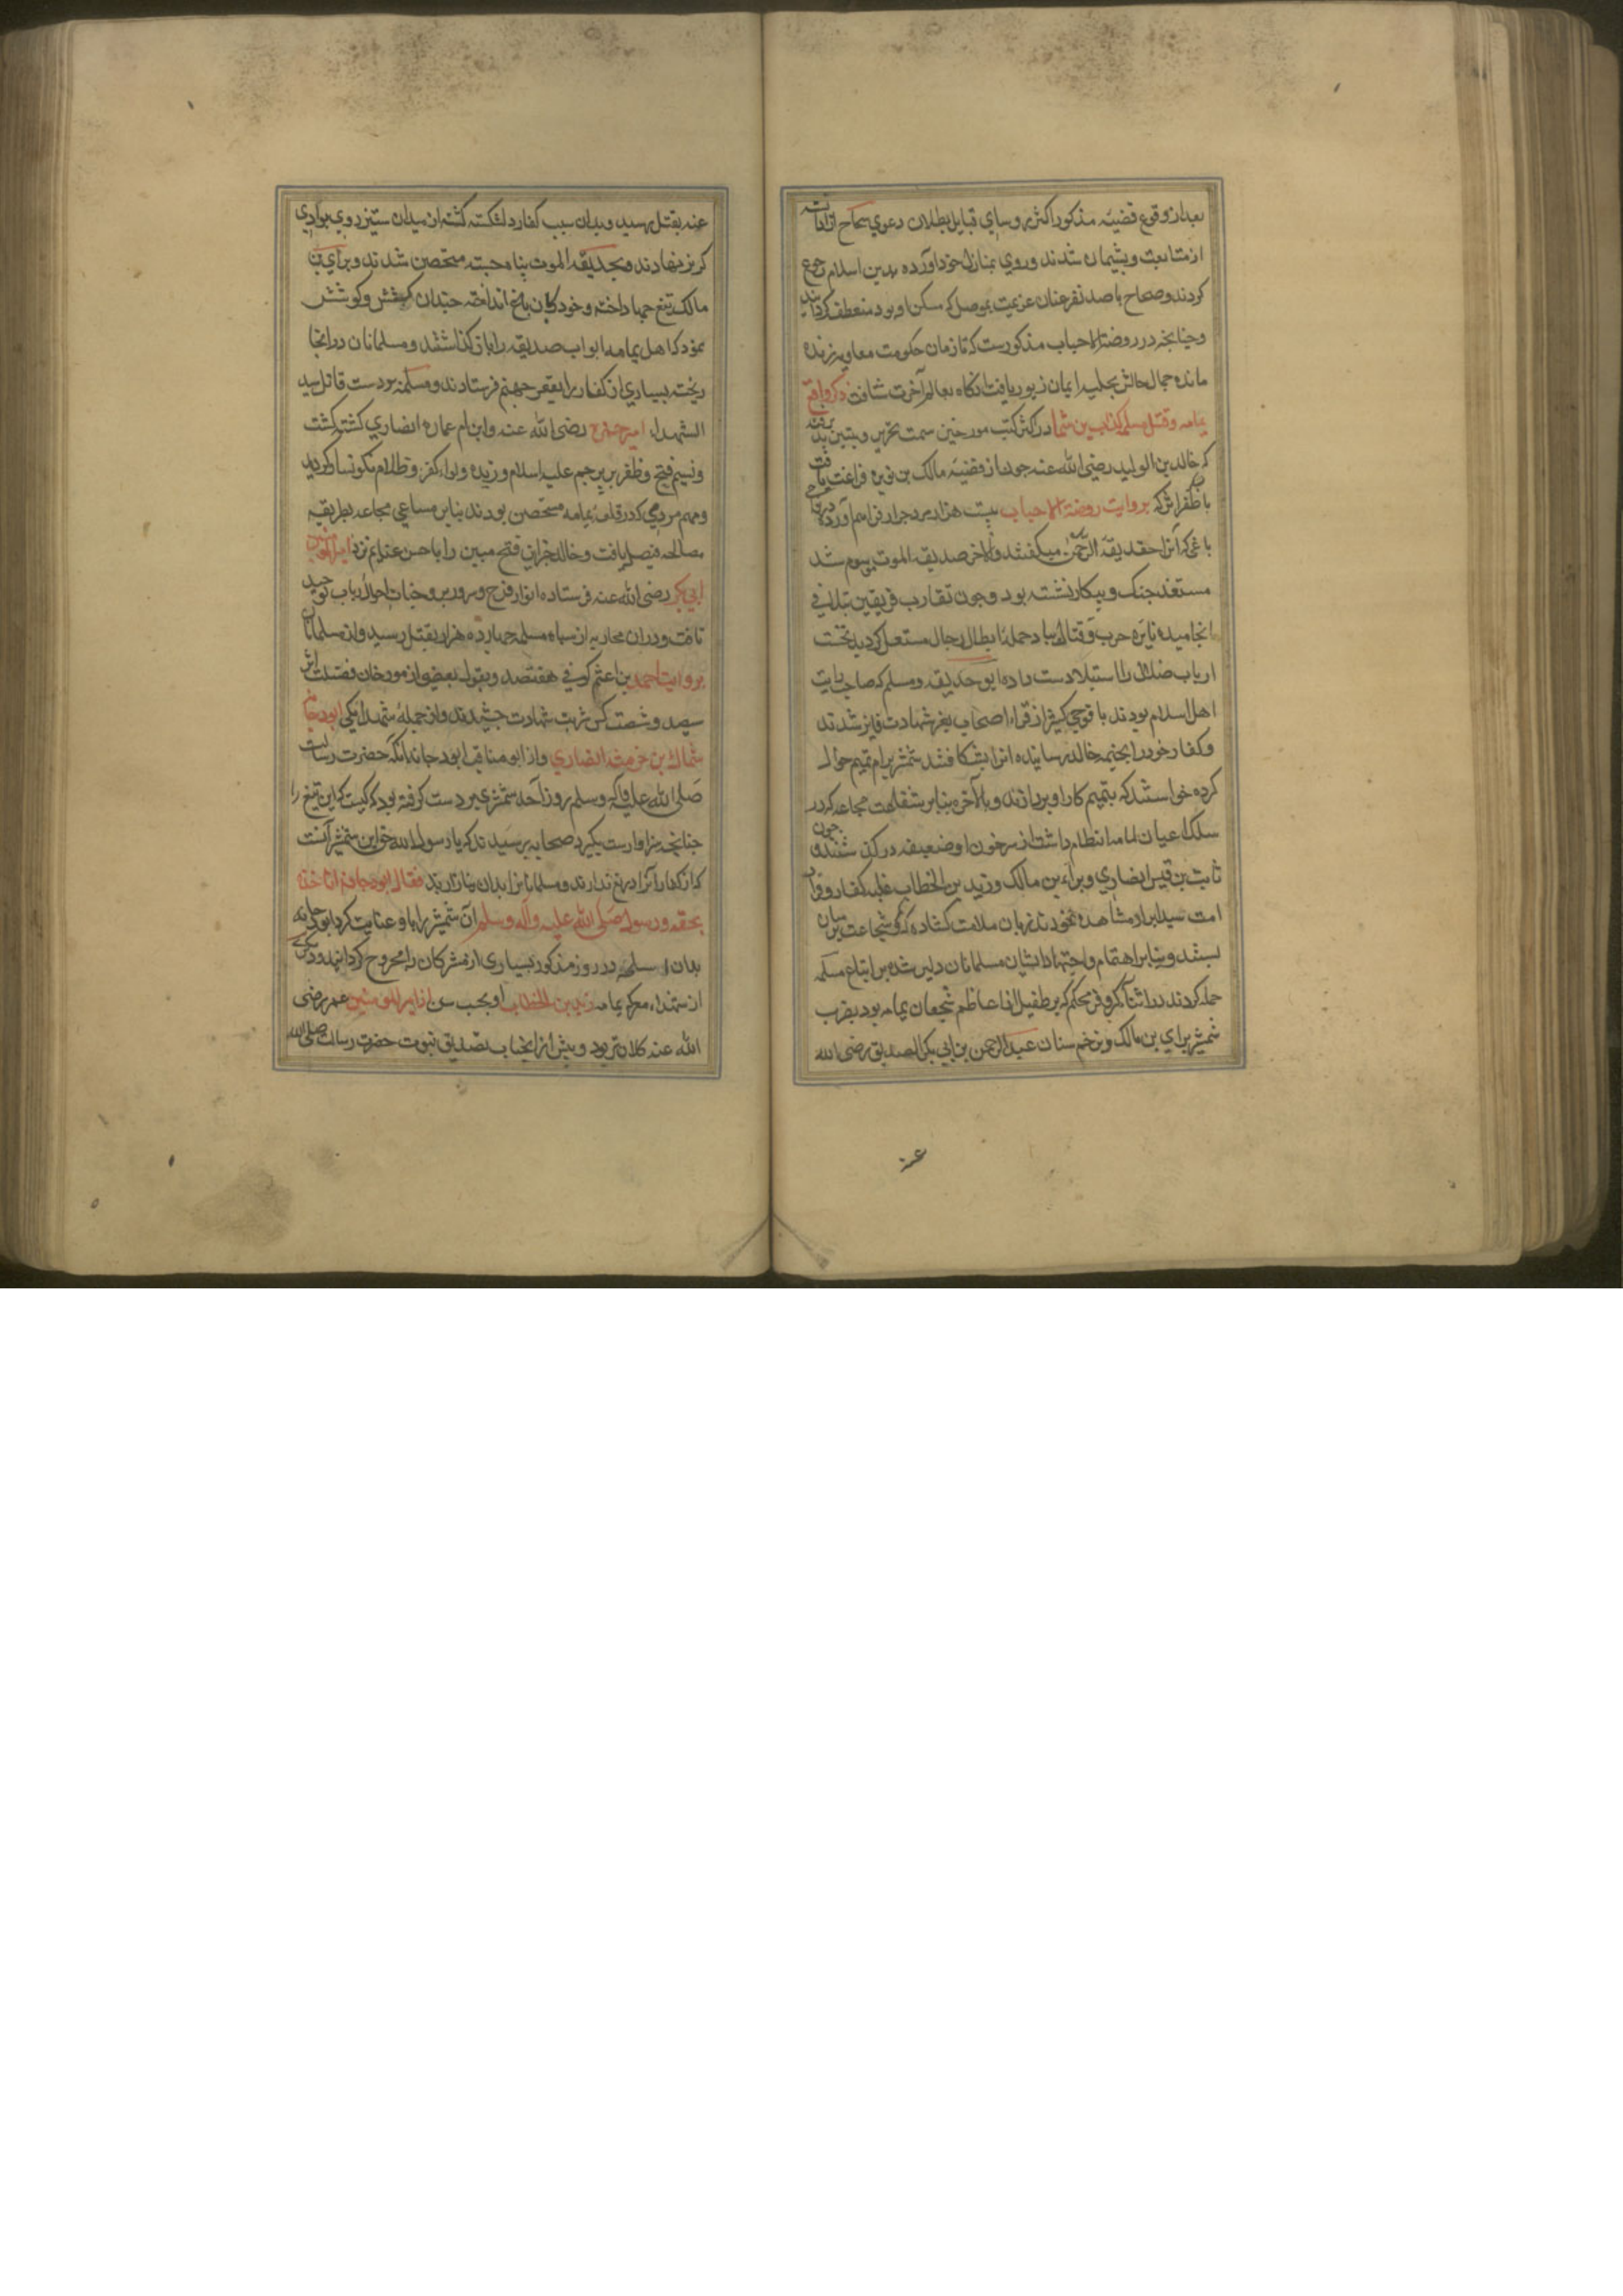 بعد از وقوع قضیه مذکور اکثر روسای قبایل بطلان دعوی سجاح
از متابعت وپشیمان شدند وروی بمنازل خود آورده بدین اسلام رجوع
کردند وسجاح با صد نفر عنان عزیمت بموصل که مسکن او بود منعطف گردانید
وچنانچه در روضة الاحباب مذکورست که تا زمان حکومت معاویه زنده
مانده جمال حالش بحلیه ایمان زیور یافت آنگاه بعالم آخرت شتافت ذکر وقایع
یمامه وقتل مسیلمه کذاب در اکثر کتب مورخین سمت تحریر وتبیین
که خالد بن الولید رضی الله عنه چون از قضیه مالک بن نویره فراغت یافت
با ظفر اثر که بروایت روضة الاحباب بیست هزار مرد جرار فراهم آورده
باغی که آنرا حدیقة الرحمن میگفتند وبالاخر حدیقة الموت موسوم شد
مستعد جنک وپیکار نشسته بود وچون تقارب فریقین بتلاقی
انجامیده نایره حرب وقتال بباد حمله ابطال رجال مشتعل گردید نخست
ارباب ضلال را استیلا دست داده ابو حذیفه وسلم که صاحب رایت
اهل اسلام بودند با فوجی کثیر از قراء اصحاب بعز شهادت فایز شدند
وکفار خود را بخیمه خالد رسانیده آنرا بشکافتند شمشیر بر ام تمیم حواله
کرده خواستند که بتتمیم کار او پردازند وبالآخره بنابر شفاعت مجاعه که در
سلک اعیان یمامه انتظام داشت از سر خون او ضعیفه در گذشتند وچون
ثابت بن قیس انصاری وبراء بن مالک وزید بن الخطاب غلبه کفار وفرار
امت سید ابرار مشاهده نمودند زبان ملامت گشاده کمر شجاعت بر میان
بستند وبنابر اهتمام واجتهاد ایشان مسلمانان دلیر شده بر اتباع مسیلمه
حمله کردند در اثناء کر وفر محکم بن طفیل از اعاظم شجعان یمامه بود بضرب
شمشیر برای بن مالک وزخم سنان عبد الرحمن بن ابی بکر الصدیق رضی الله
عنه بقتل رسید وبدان سبب کفار دلشکسته گشته از میدان ستیز روی بوادی
گریز نهادند وبحدیقة الموت پناه جسته متحصن شدند وبرای بن
مالک تیغ جهاد آخته وخود را بان باغ انداخته چندان کشش وکوشش
نمود که اهل یمامه ابواب حدیقه را باز گذاشتند ومسلمانان در آنجا
ریخته بسیاری از کفار را بقعر جهنم فرستادند ومسیلمه بدست قاتل سید
الشهدا امیر حمزه رضی الله عنه وابن ام عماره انصاری کشته گشت
ونسیم فتح وظفر بر پرچم علم اسلام وزیده ولواء کفر وظلام نگونسار گردید
ومهم مردمی که در قلعه یمامه متحصن بودند بنابر مساعی مجاعه بطریقه
مصالحه فیصل یافت وخالد خبر این فتح مبین را با حسن غنایم نزد امیر المومنین
ابی بکر رضی الله عنه فرستاده انوار فرح وسرور بر وجنات احوال ارباب توحید
تافت ودران محاربه از سپاه مسیلمه چهارده هزار بقتل رسید واز مسلمانان
بروایت احمد بن اعثم کوفی هفتصد وبقول بعضی از مورخان فضیلت اثر
سیصد وشصت کس شربت شهادت چشیدند واز جمله شهدا یکی ابو دجانه
سماک بن خرشه انصاری واز مناقب ابو دجانه آنکه حضرت رسالت
صلی الله علیه وآله وسلم روز احد شمشیری بر دست گرفته بود که کیست که این تیغ را
چنانچه سزاوارست بگیرد صحابه پرسیدند که یا رسول الله حق این شمشیر آنست
که از کفار آنرا دریغ ندارند ومسلمانانرا بدان نیازارند فقال ابو دجانه انا اخذه
بحقه ورسول صلی الله علیه وآله وسلم آن شمشیر را باو عنایت کرد ابو دجانه
بدان اسلحه در روز مذکور بسیاری از مشرکان را مجروح گردانید ودیگری
از شهداء معرکه یمامه زید بن الخطاب او بحسب سن از امیر المومنین عمر رضی
الله عنه کلان تر بود وپیش از آنجناب بتصدیق نبوت حضرت رسالت صلی الله
عنه